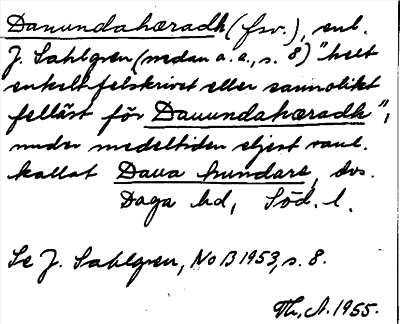 Danundahæradh (fsv.), enl.
J. Sahlgren (nedan a. a., s. 8) "helt
enkelt felskrivet eller sannolikt
felläst för Dauundahæradh",
under medeltiden eljest vanl.
kallat Daua hundare, dvs.
Daga hd, Söd. l.
Se J. Sahlgren, NoB 1953, s. 8.
Th, A. 1955.